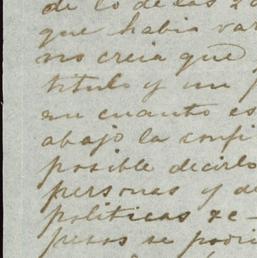 de lo de las
que habia var
no creia que
titulo y un
en cuanto es
abajo la confi
posible decirlo
personas y de
politicas
pesos se podri